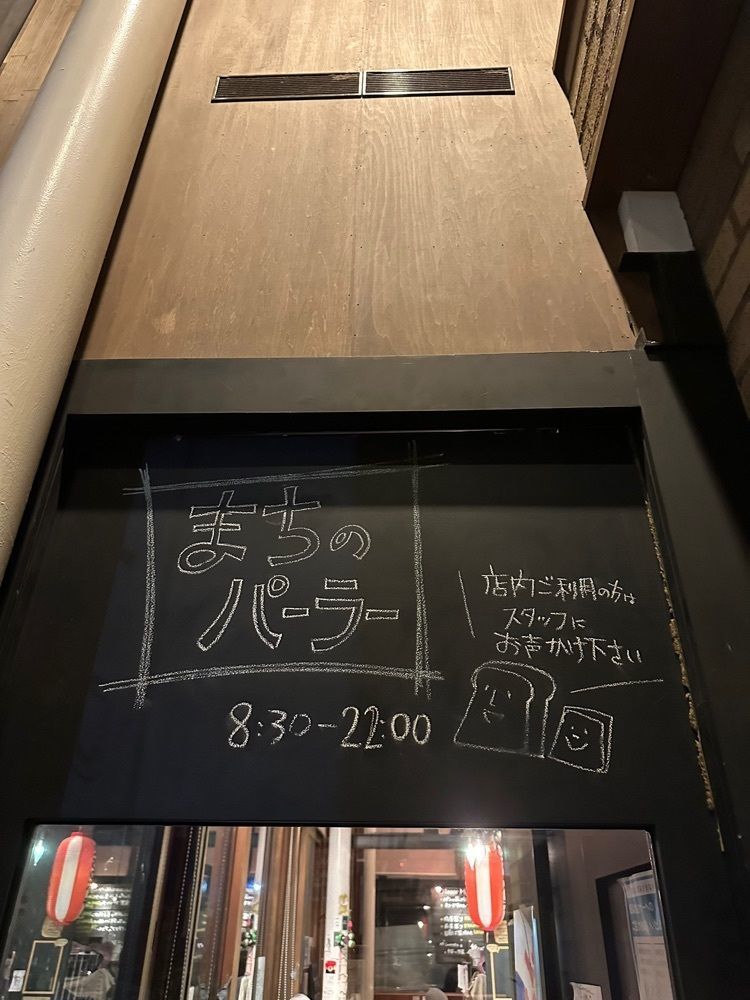 まちの
パーラー
8:30-22:00
店内ご利用の方は
スタッフに
お声がけ下さい